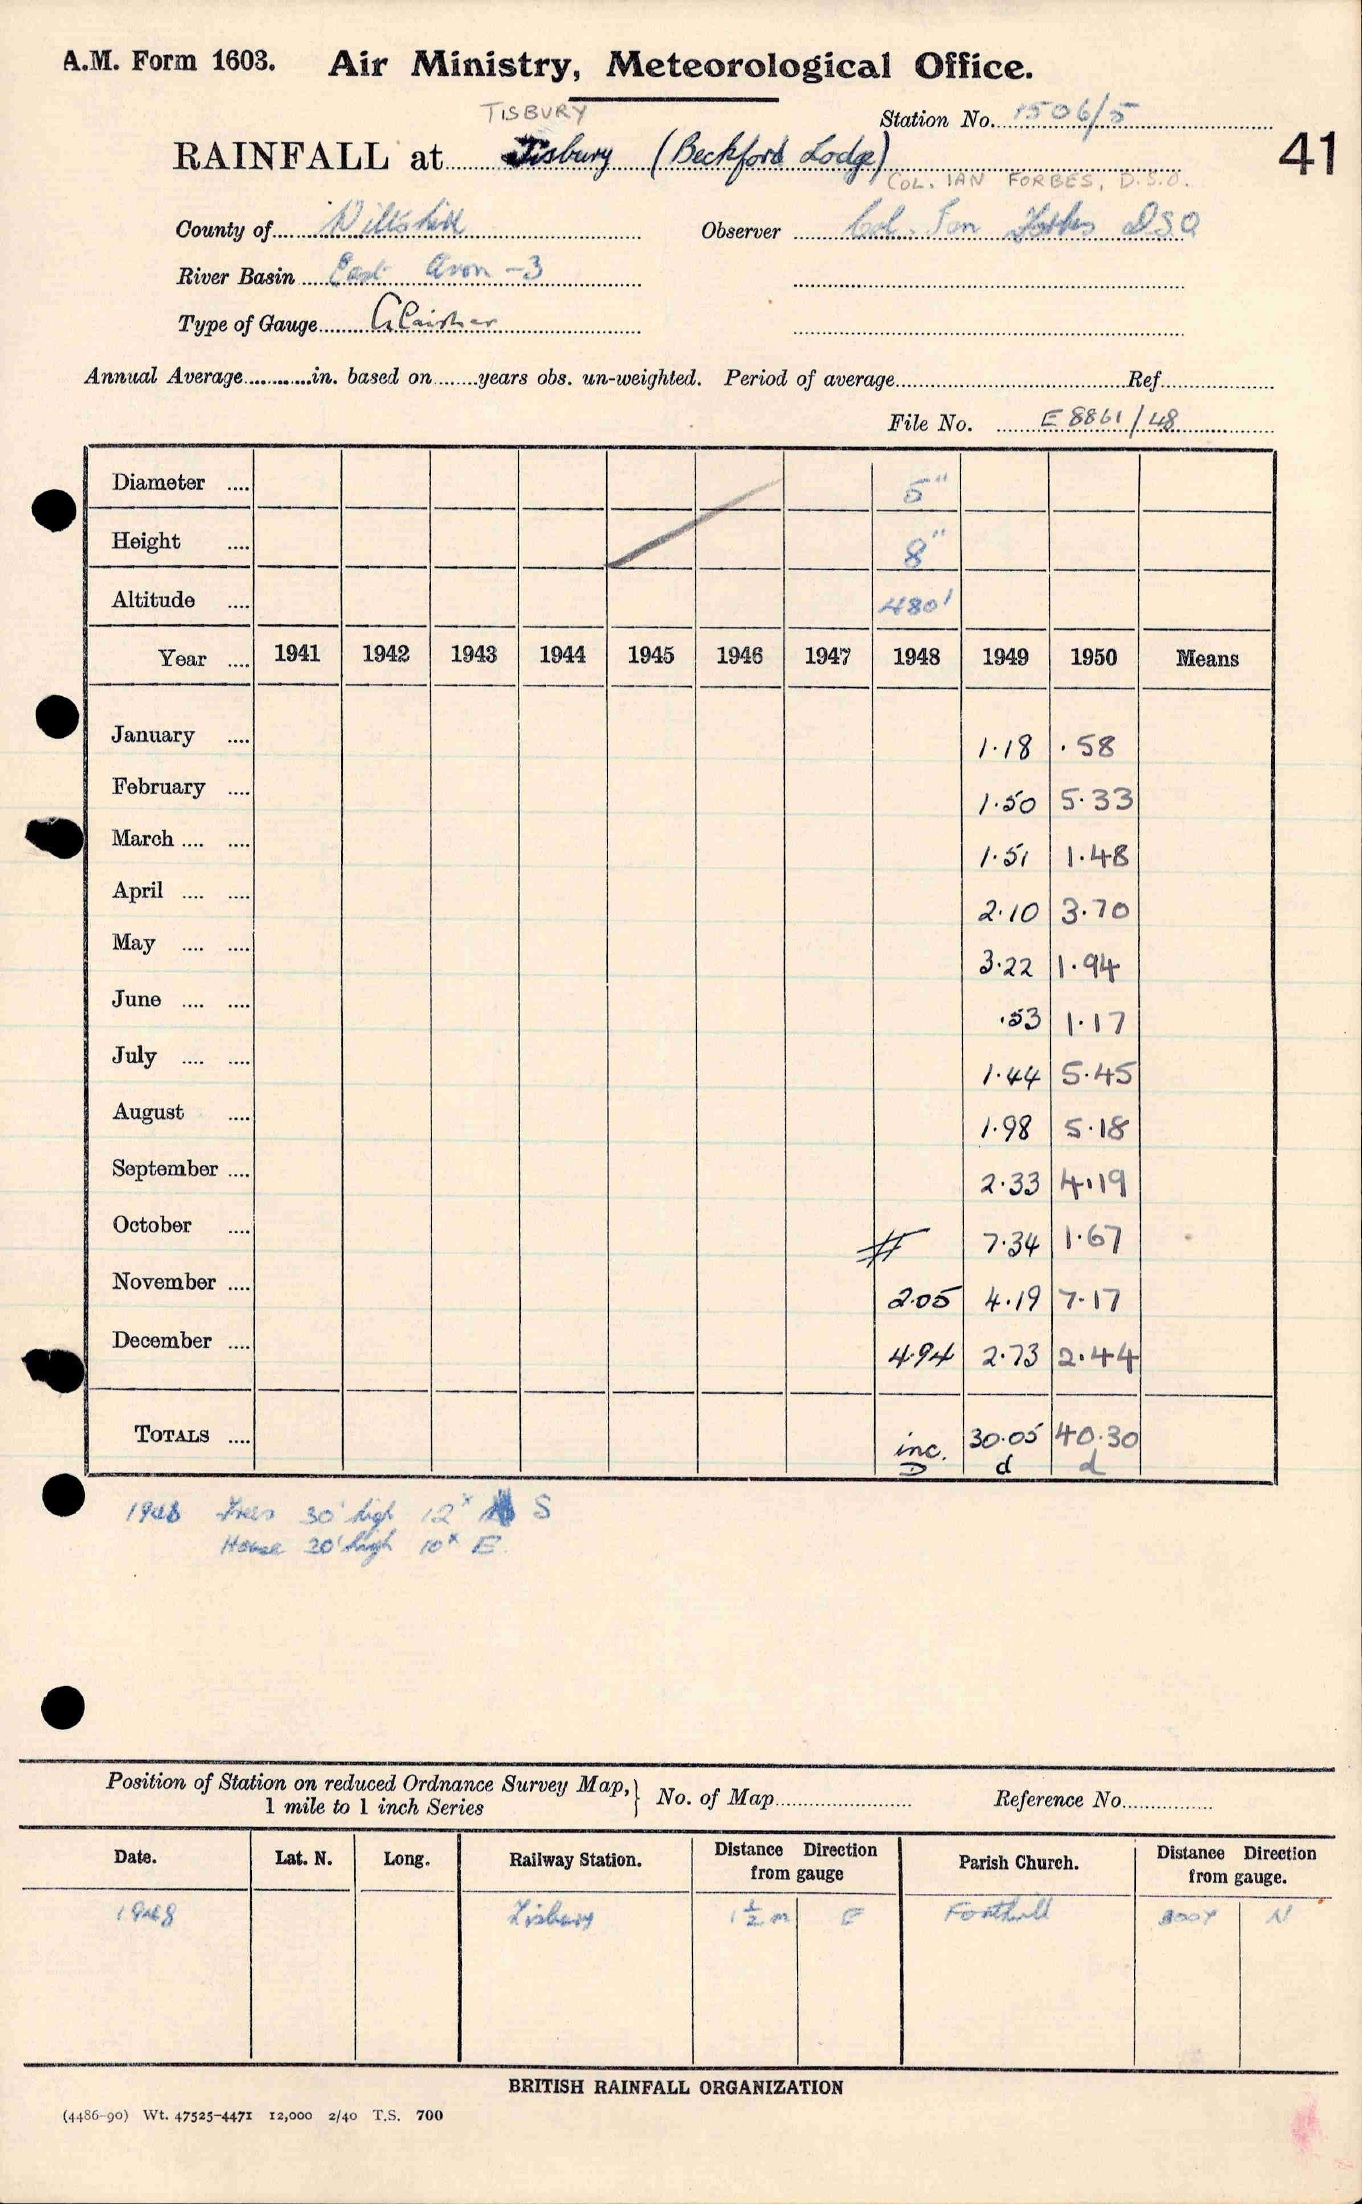 A.M. Form 1603. Air Ministry, Meteorological Office.
TISBURY
Station No. 1506/5
RAINFALL at Tisbury (Beckford Lodge)
41
COL. IAN FORBES, D.S.O.
County of Wiltshire Observer Col. Ian Forbes DSO
River Basin East Avon -3
Type of Gauge Glaisher
Annual Average............in. based on........years obs. un-weighted. Period of average........Ref........
File No. E 8861/48
Diameter .... 5"
Height .... 8"
Altitude .... 480'
Year .... 1941 1942 1943 1944 1945 1946 1947 1948 1949 1950 Means
January .... 1.18 .58
February .... 1.50 5.33
March .... .... 1.51 1.48
April .... .... 2.10 3.70
May .... .... 3.22 1.94
June .... .... .53 1.17
July .... .... 1.44 5.45
August .... 1.98 5.18
September .... 2.33 4.19
October .... 7.34 1.67
November .... 2.05 4.19 7.17
December .... 4.94 2.73 2.44
TOTALS .... inc. 30.05 40.30
D d d
1948 Trees 30' high 12x S
House 20' high 10x E
Position of Station on reduced Ordnance Survey Map,} No. of Map........ Reference No........
1 mile to 1 inch Series
Date. Lat. N. Long. Railway Station. Distance Direction from gauge Parish Church. Distance Direction from gauge.
1948 Tisbury 1 1/2 m E Fonthill 300y N
BRITISH RAINFALL ORGANIZATION
(4486-90) Wt. 47525-4471 12,000 2/40 T.S. 700